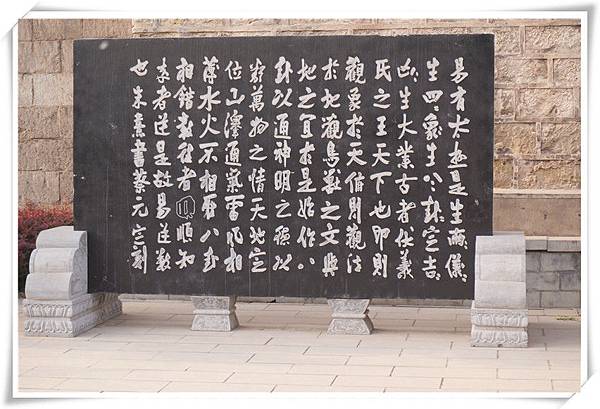 易有太極是生兩儀
生四〻象生八〻卦定吉
凶生大業古者伏羲
氏之王天下也仰則
觀象於天俯則觀法
於地觀鳥獸之文與
地之宜於是始作八
卦以通神明之德以
類萬物之情天地定
位山澤通氣雷風相
薄水火不相射八卦
相錯數往者順知
來者逆是故易逆數
也朱熹書蔡元定刻